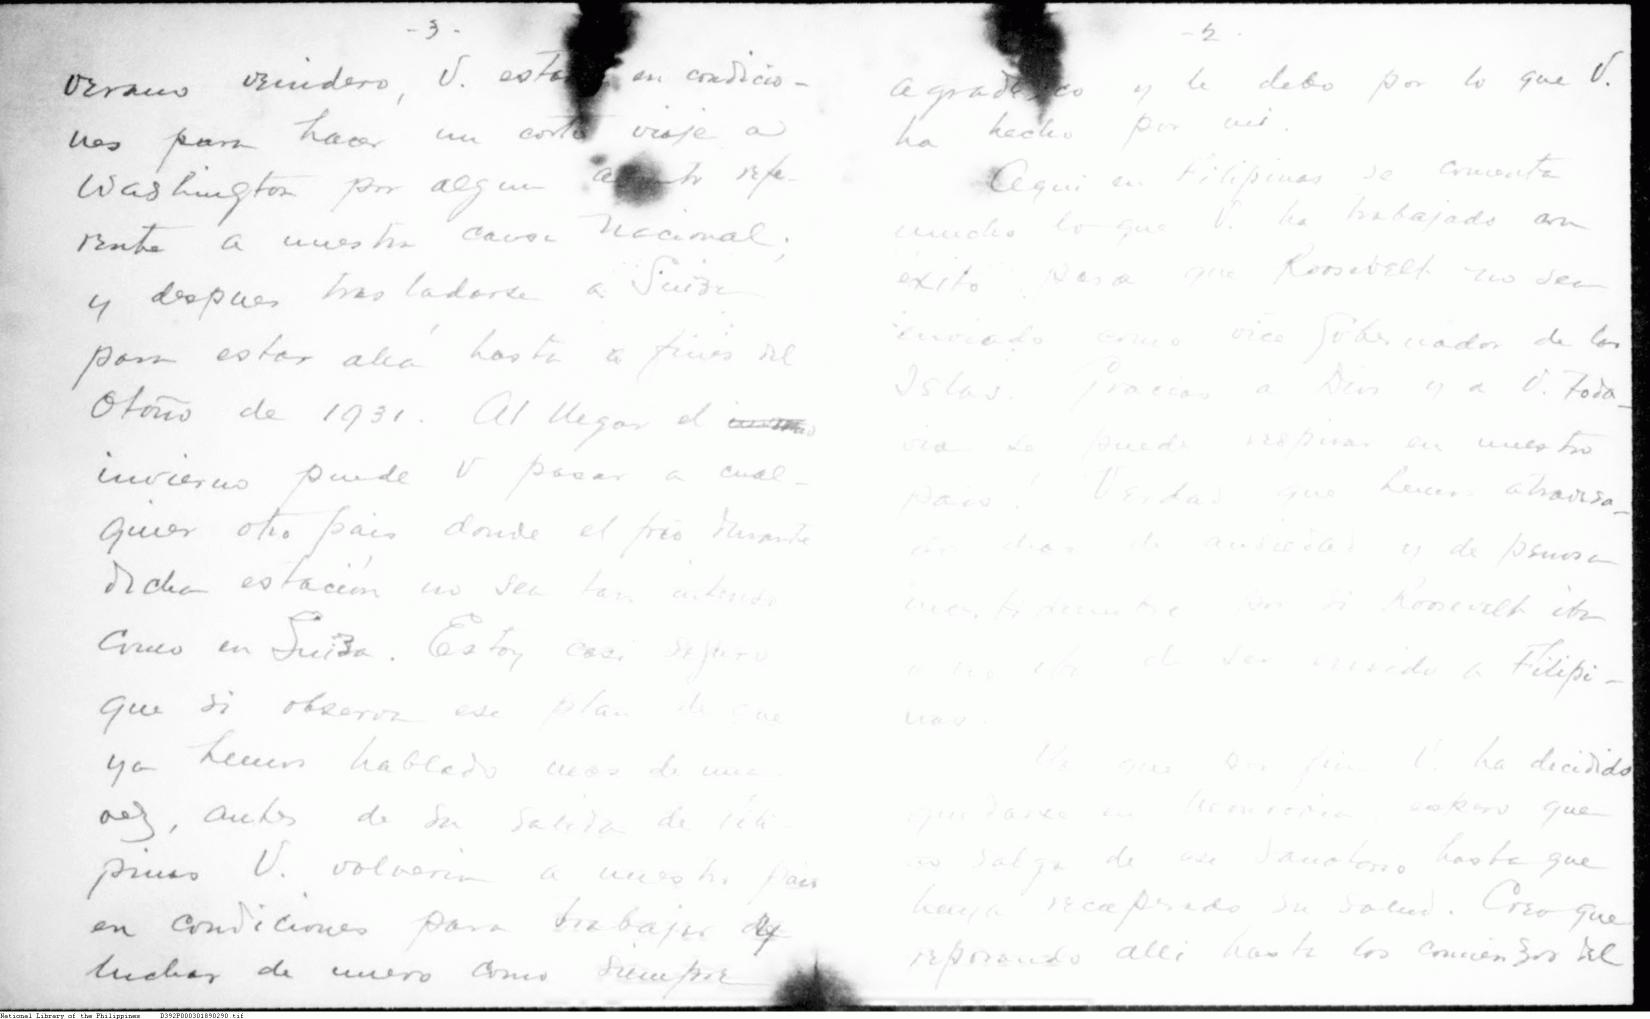 - 3 -
verano venidero, V. estará en condicio-
nes para hacer un corto viaje a
Washington por algun asunto refe-
rente a nuestra causa Nacional;
y despues trasladarse a Suiza
para estar allá hasta a fines del
Otoño de 1931. Al llegar el
invierno puede V pasar a cual-
quier otro pais donde el frio durante
dicha estación no sea tan intenso
como en Suiza. Estoy casi seguro
que si observa ese plan de que
ya hemos hablado mas de una
vez, antes de su salida de Fili-
pinas V. volveria a nuestro pais
en condiciones para trabajar y
luchar de nuevo como siempre
- 2 -
agradezco y le debo por lo que V.
ha hecho por mi.
Aqui en Filipinas se comenta
mucho lo que V. ha trabajado con
exito para que Roosevelt no sea
enviado como vice Gobernador de las
Islas. Gracias a Dios y a V. toda-
via se puede respirar en nuestro
pais! Verdad que hemos atravesa-
do dias de ansiedad y de penosa
incertidumbre por si Roosevelt iba
o no iba de ser enviado a Filipi-
nas.
Ya que por fin V. ha decidido
quedarse en Monrovia, espero que
no salga de ese Sanatorio hasta que
haya recuperado su salud. Creo que
reposando alli hasta los comienzos del
National Library of the Philippines D392P000301890290.tif